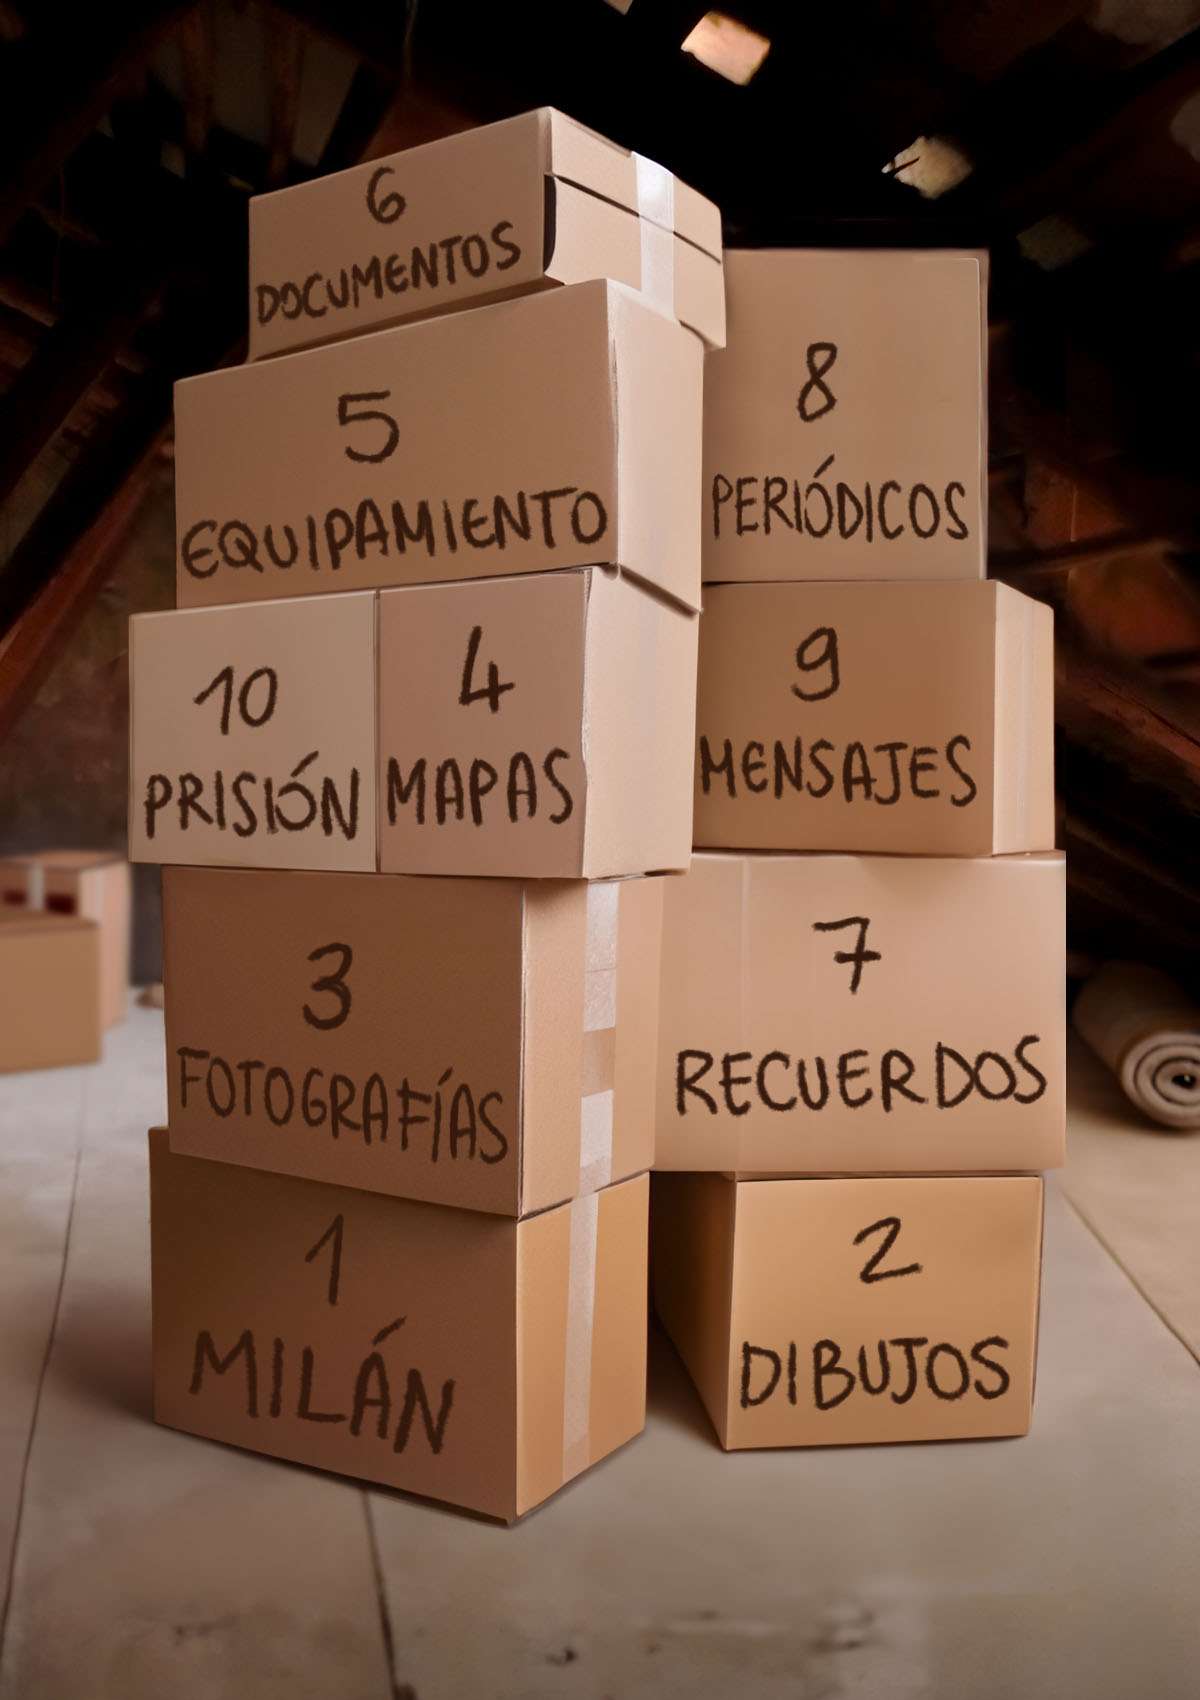 6
DOCUMENTOS
5
EQUIPAMIENTO
8
PERIÓDICOS
10
PRISIÓN
4
MAPAS
9
MENSAJES
3
FOTOGRAFÍAS
7
RECUERDOS
1
MILÁN
2
DIBUJOS